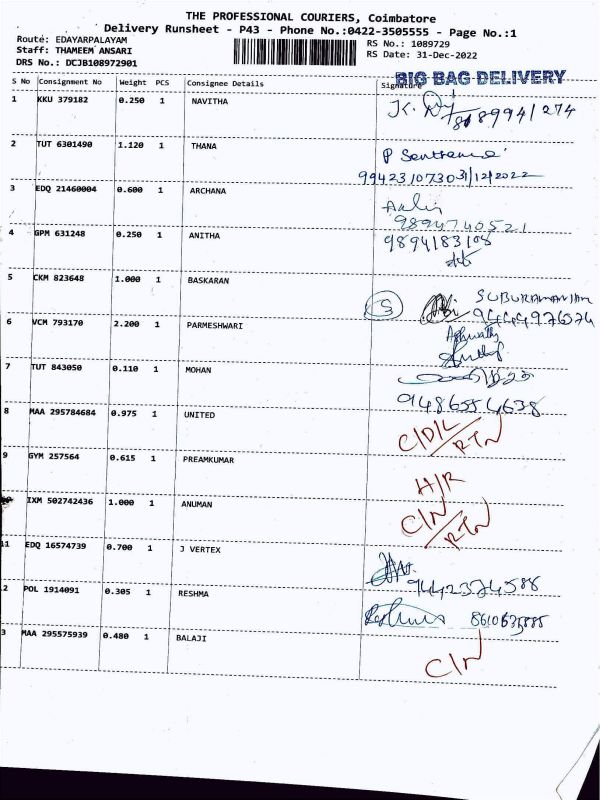 THE PROFESSIONAL COURIERS, Coimbatore
Delivery Runsheet - P43 - Phone No.:0422-3505555 - Page No.:1
Route: EDAYARPALAYAM
Staff: THAMEEM ANSARI
DRS No.: DCJB108972901
RS No.: 1089729
RS Date: 31-Dec-2022
BIG BAG DELIVERY
S No Consignment No Weight PCS Consignee Details Signature
1 KKU 379182 0.250 1 NAVITHA
2 TUT 6301490 1.120 1 THANA
9942310730 31/12/2022
3 EDQ 21460004 0.600 1 ARCHANA
9894740521
4 GPM 631248 0.250 1 ANITHA 9894183108
5 CKM 823648 1.000 1 BASKARAN
S SUBURAMANIAN
9444976074
6 VCM 793170 2.200 1 PARMESHWARI
7 TUT 843050 0.110 1 MOHAN
9486554638
8 MAA 295784684 0.975 1 UNITED C/D/L/RTN
9 GYM 257564 0.615 1 PREAMKUMAR H/R
IXM 502742436 1.000 1 ANUMAN C/N/RTN
11 EDQ 16574739 0.700 1 J VERTEX
9442374588
2 POL 1914091 0.305 1 RESHMA Reshma
3 MAA 295575939 0.480 1 BALAJI C/N